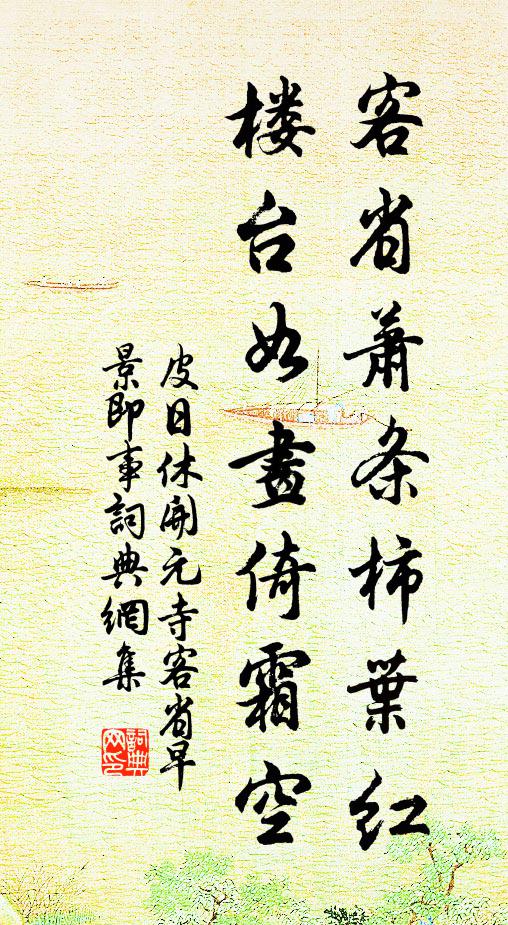 客省萧条柿葉红
楼台如畫倚霜空
皮日休開元寺客省早
景即事詞典網集
詞典网印